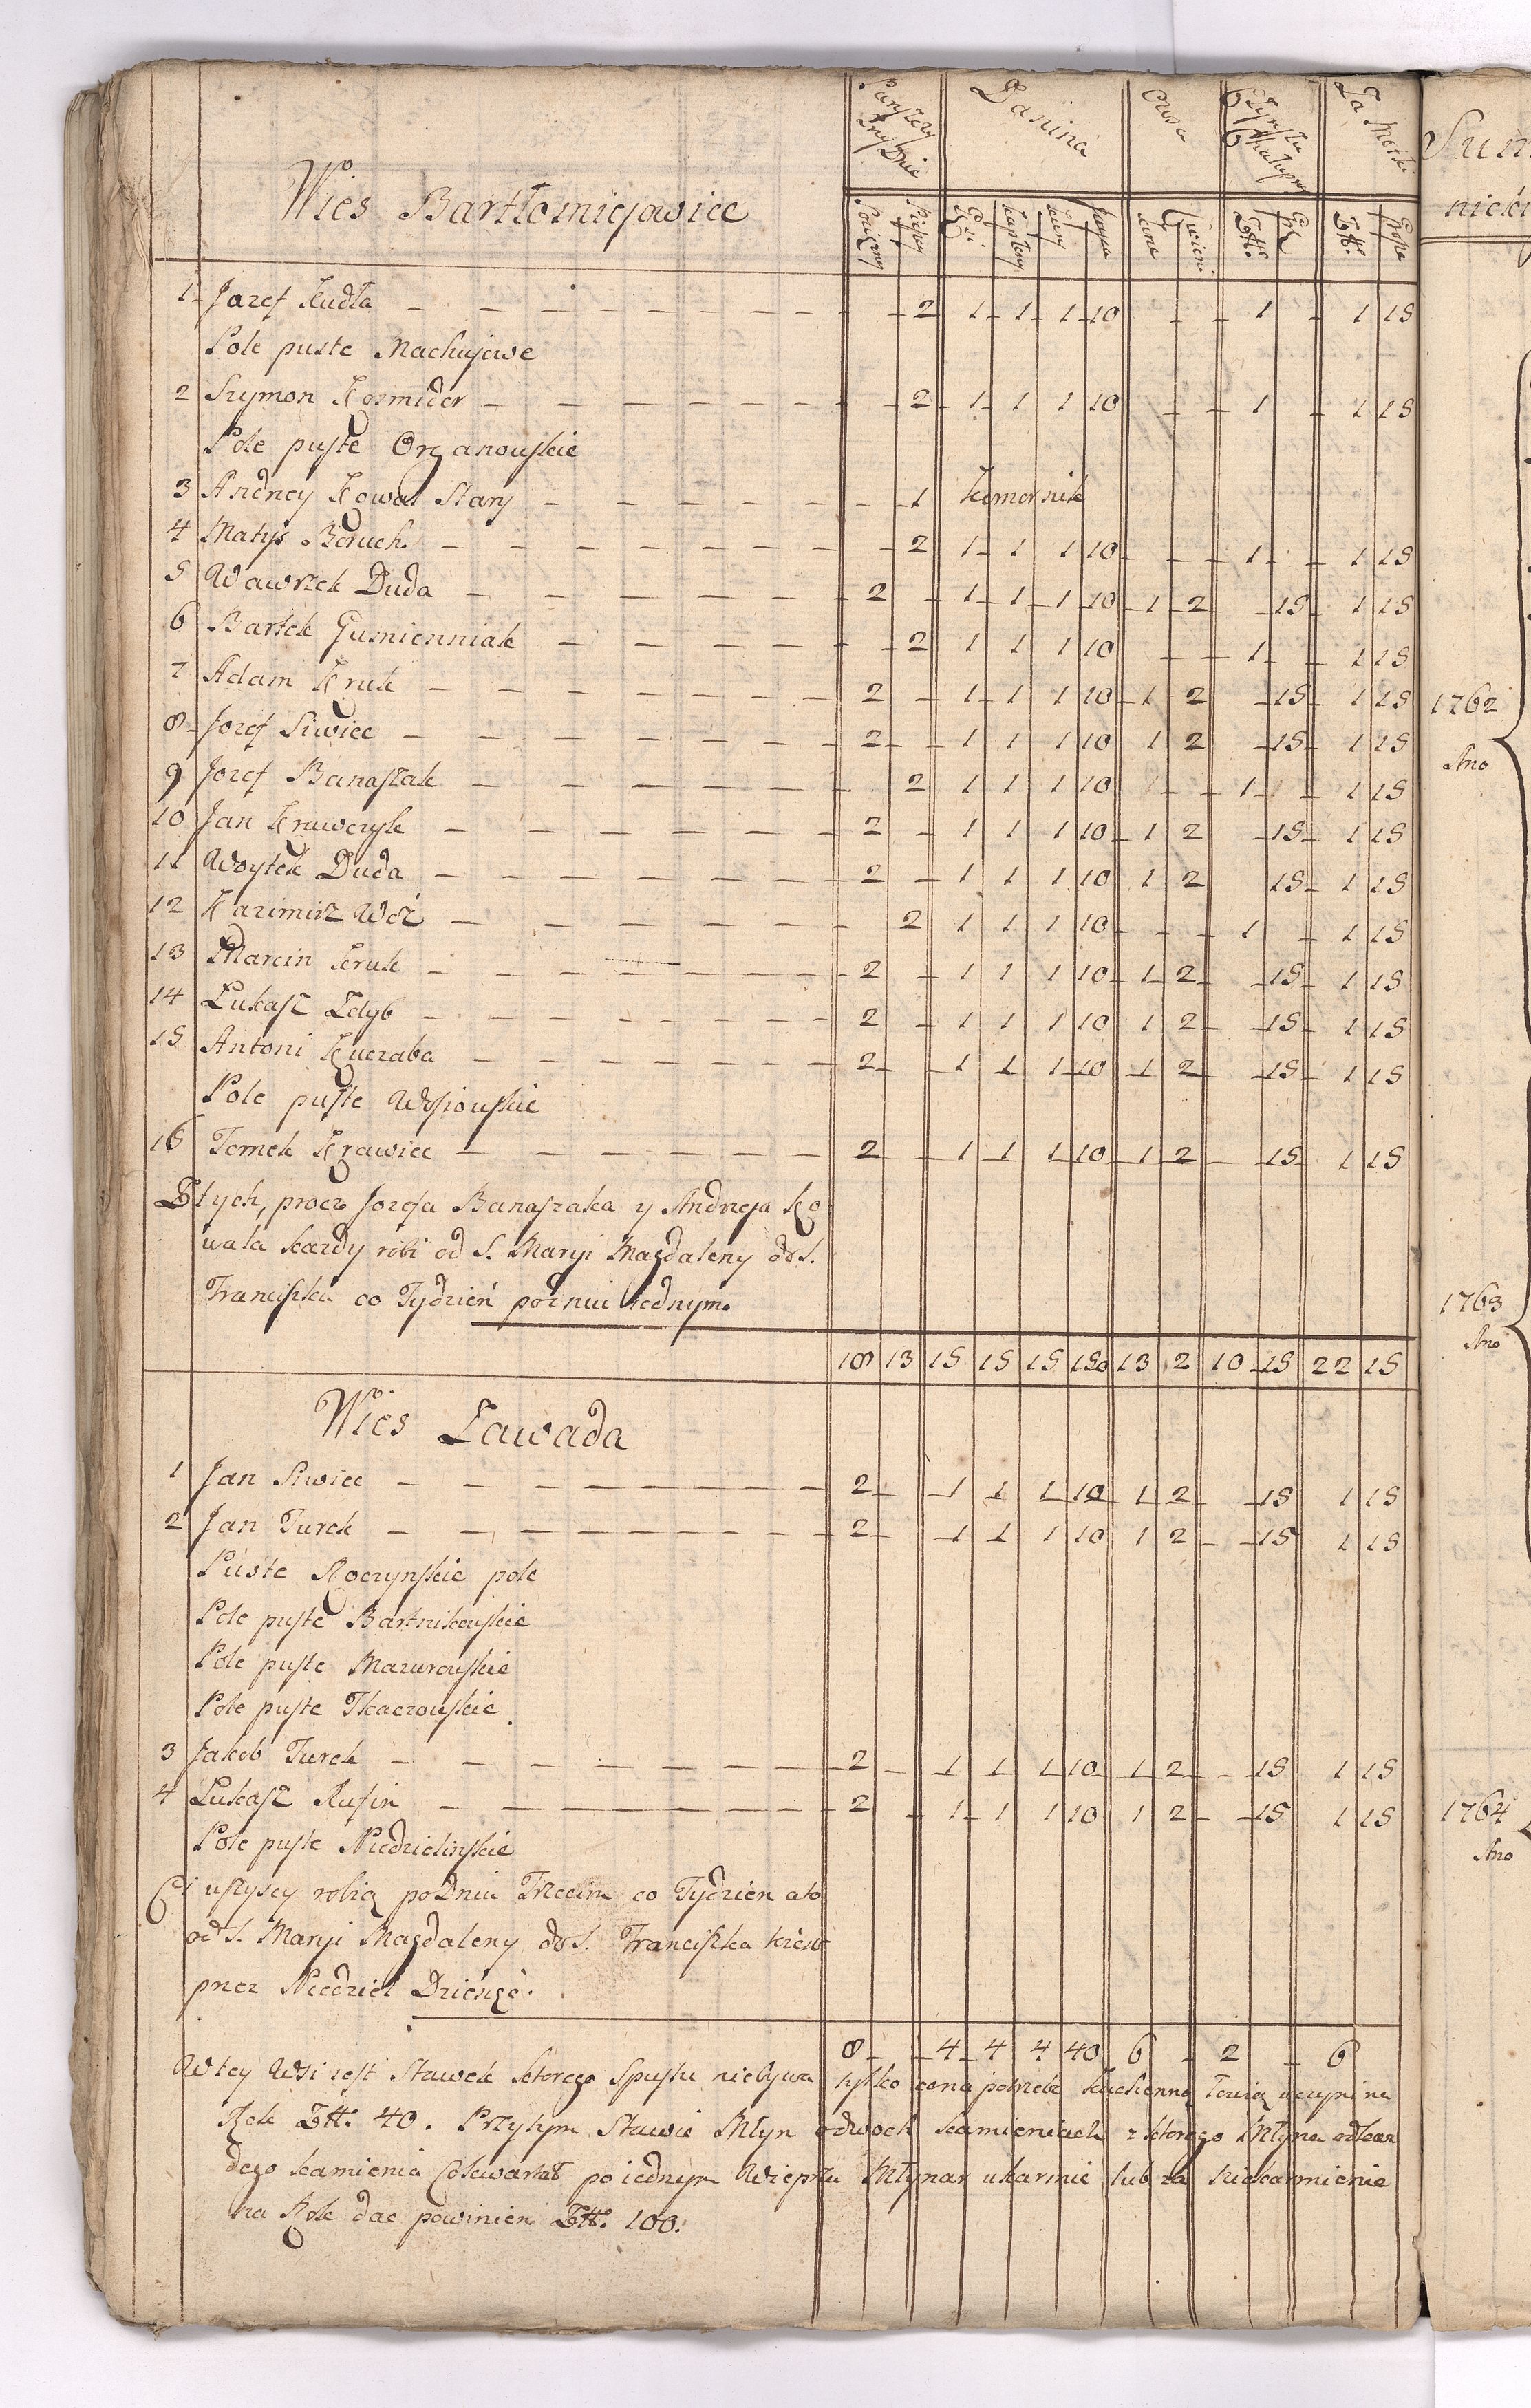 Pańszczyzny Dnie Danina Owsa Czynszu Chałupn. Za Motki
Wies Bartłomiejowice
Sprzężny Pieszy Gęsi Kapłony Kury Jayca Korce Cwierci Złł. Gr. Złł. Grosze
1 Jozef Kudła — — — — — — 2 1 1 1 10 – – 1 – 1 15
Pole puste Machajowe
2 Szymon Kozmider — — — — — 2 1 1 1 10 – – 1 – 1 15
Pole puste Organowskie
3 Andrzey Kowal Stary — — — — — 1 Komornik
4 Matys Boruch — — — — — — 2 1 1 1 10 – – 1 – 1 15
5 Wawrzek Duda — — — — — 2 – 1 1 1 10 1 2 – 15 1 15
6 Bartek Gumienniak — — — — 2 1 1 1 10 – – 1 – 1 15
7 Adam Kruk — — — — — — 2 – 1 1 1 10 1 2 – 15 1 15
8 Jozef Siwiec — — — — — — 2 – 1 1 1 10 1 2 – 15 1 15
9 Jozef Banaszak — — — — — 2 1 1 1 10 – – 1 – 1 15
10 Jan Krawczyk — — — — — 2 – 1 1 1 10 1 2 – 15 1 15
11 Woytek Duda — — — — — — 2 – 1 1 1 10 1 2 15 1 15
12 Kazimirz Woź — — — — — 2 1 1 1 10 – – 1 – 1 15
13 Marcin Kruk — — — — — — 2 – 1 1 1 10 1 2 – 15 1 15
14 Łukasz Zdyb — — — — — — 2 – 1 1 1 10 1 2 – 15 1 15
15 Antoni Kuczaba — — — — — 2 – 1 1 1 10 1 2 – 15 1 15
Pole puste Wosiowskie
16 Tomek Krawiec — — — — — 2 – 1 1 1 10 1 2 – 15 1 15
Z tych, procz Jozefa Banaszaka y Andrzeja Ko
wala kazdy robi od S. Maryi Magdaleny do S.
Franciszka co Tydzień po dniu iednym.
18 13 15 15 15 150 13 2 10 15 22 15
Wies Zawada
1 Jan Siwiec — — — — — — 2 – 1 1 1 10 1 2 – 15 1 15
2 Jan Turek — — — — — — 2 – 1 1 1 10 1 2 – 15 1 15
Puste Roczynskie pole
Pole puste Bartnikowskie
Pole puste Mazurowskie
Pole puste Tkaczowskie
3 Jakob Turek — — — — — — 2 – 1 1 1 10 1 2 – 15 1 15
4 Łukasz Rufin — — — — — — 2 – 1 1 1 10 1 2 – 15 1 15
Pole puste Niedzielinskie
Ci wszyscy robią po Dniu Trzecim co Tydzien a to
od S. Maryi Magdaleny do S. Franciszka
przez Niedziel Dziesięć.
8 – 4 4 4 40 6 – 2 – 6
W tey Wsi iest Stawek ktorego Spustu niebywa tylko co na potrzebę kuchenną uczyni na
Rok Złł. 40. Przy tym Stawie Młyn o dwoch kamieniach z ktorego Młyna od każ
dego kamienia po iednym Wieprzu Młynarz ukarmić lub za nieukarmienie
na Rok dac powinien Złł. 100.
Sum
nicki
1762
Ano
1763
Ano
1764
Ano